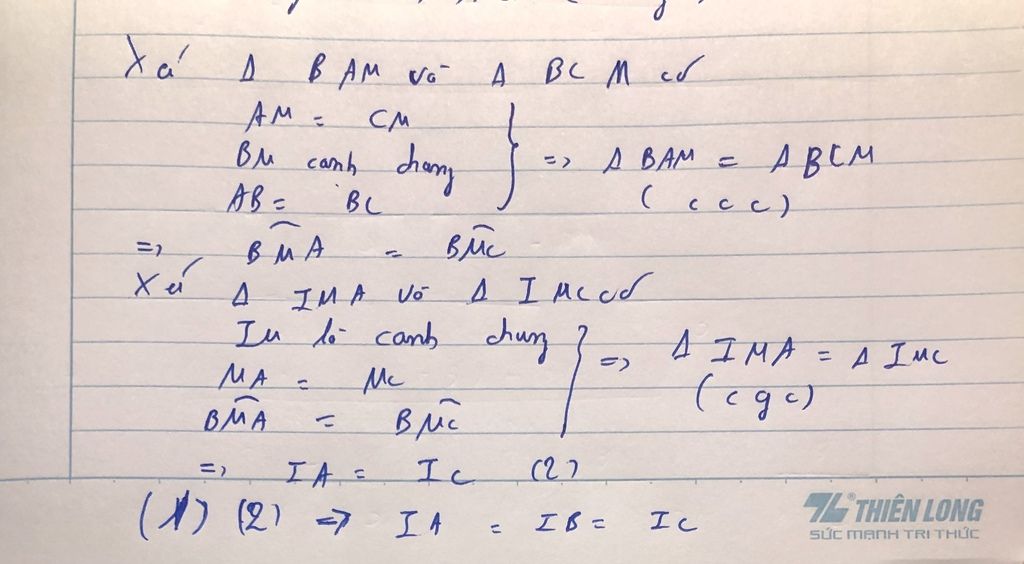 Xét Δ BAM và Δ BCM có
AM = CM
BM cạnh chung
AB = BC
=> Δ BAM = Δ BCM
(c c c)
=> BMA = BMC
Xét Δ IMA và Δ IMC có
IM là cạnh chung
MA = MC
BMA = BMC
=> Δ IMA = Δ IMC
(c g c)
=> IA = IC (2)
(1) (2) => IA = IB = IC
THIÊN LONG
SỨC MẠNH TRI THỨC